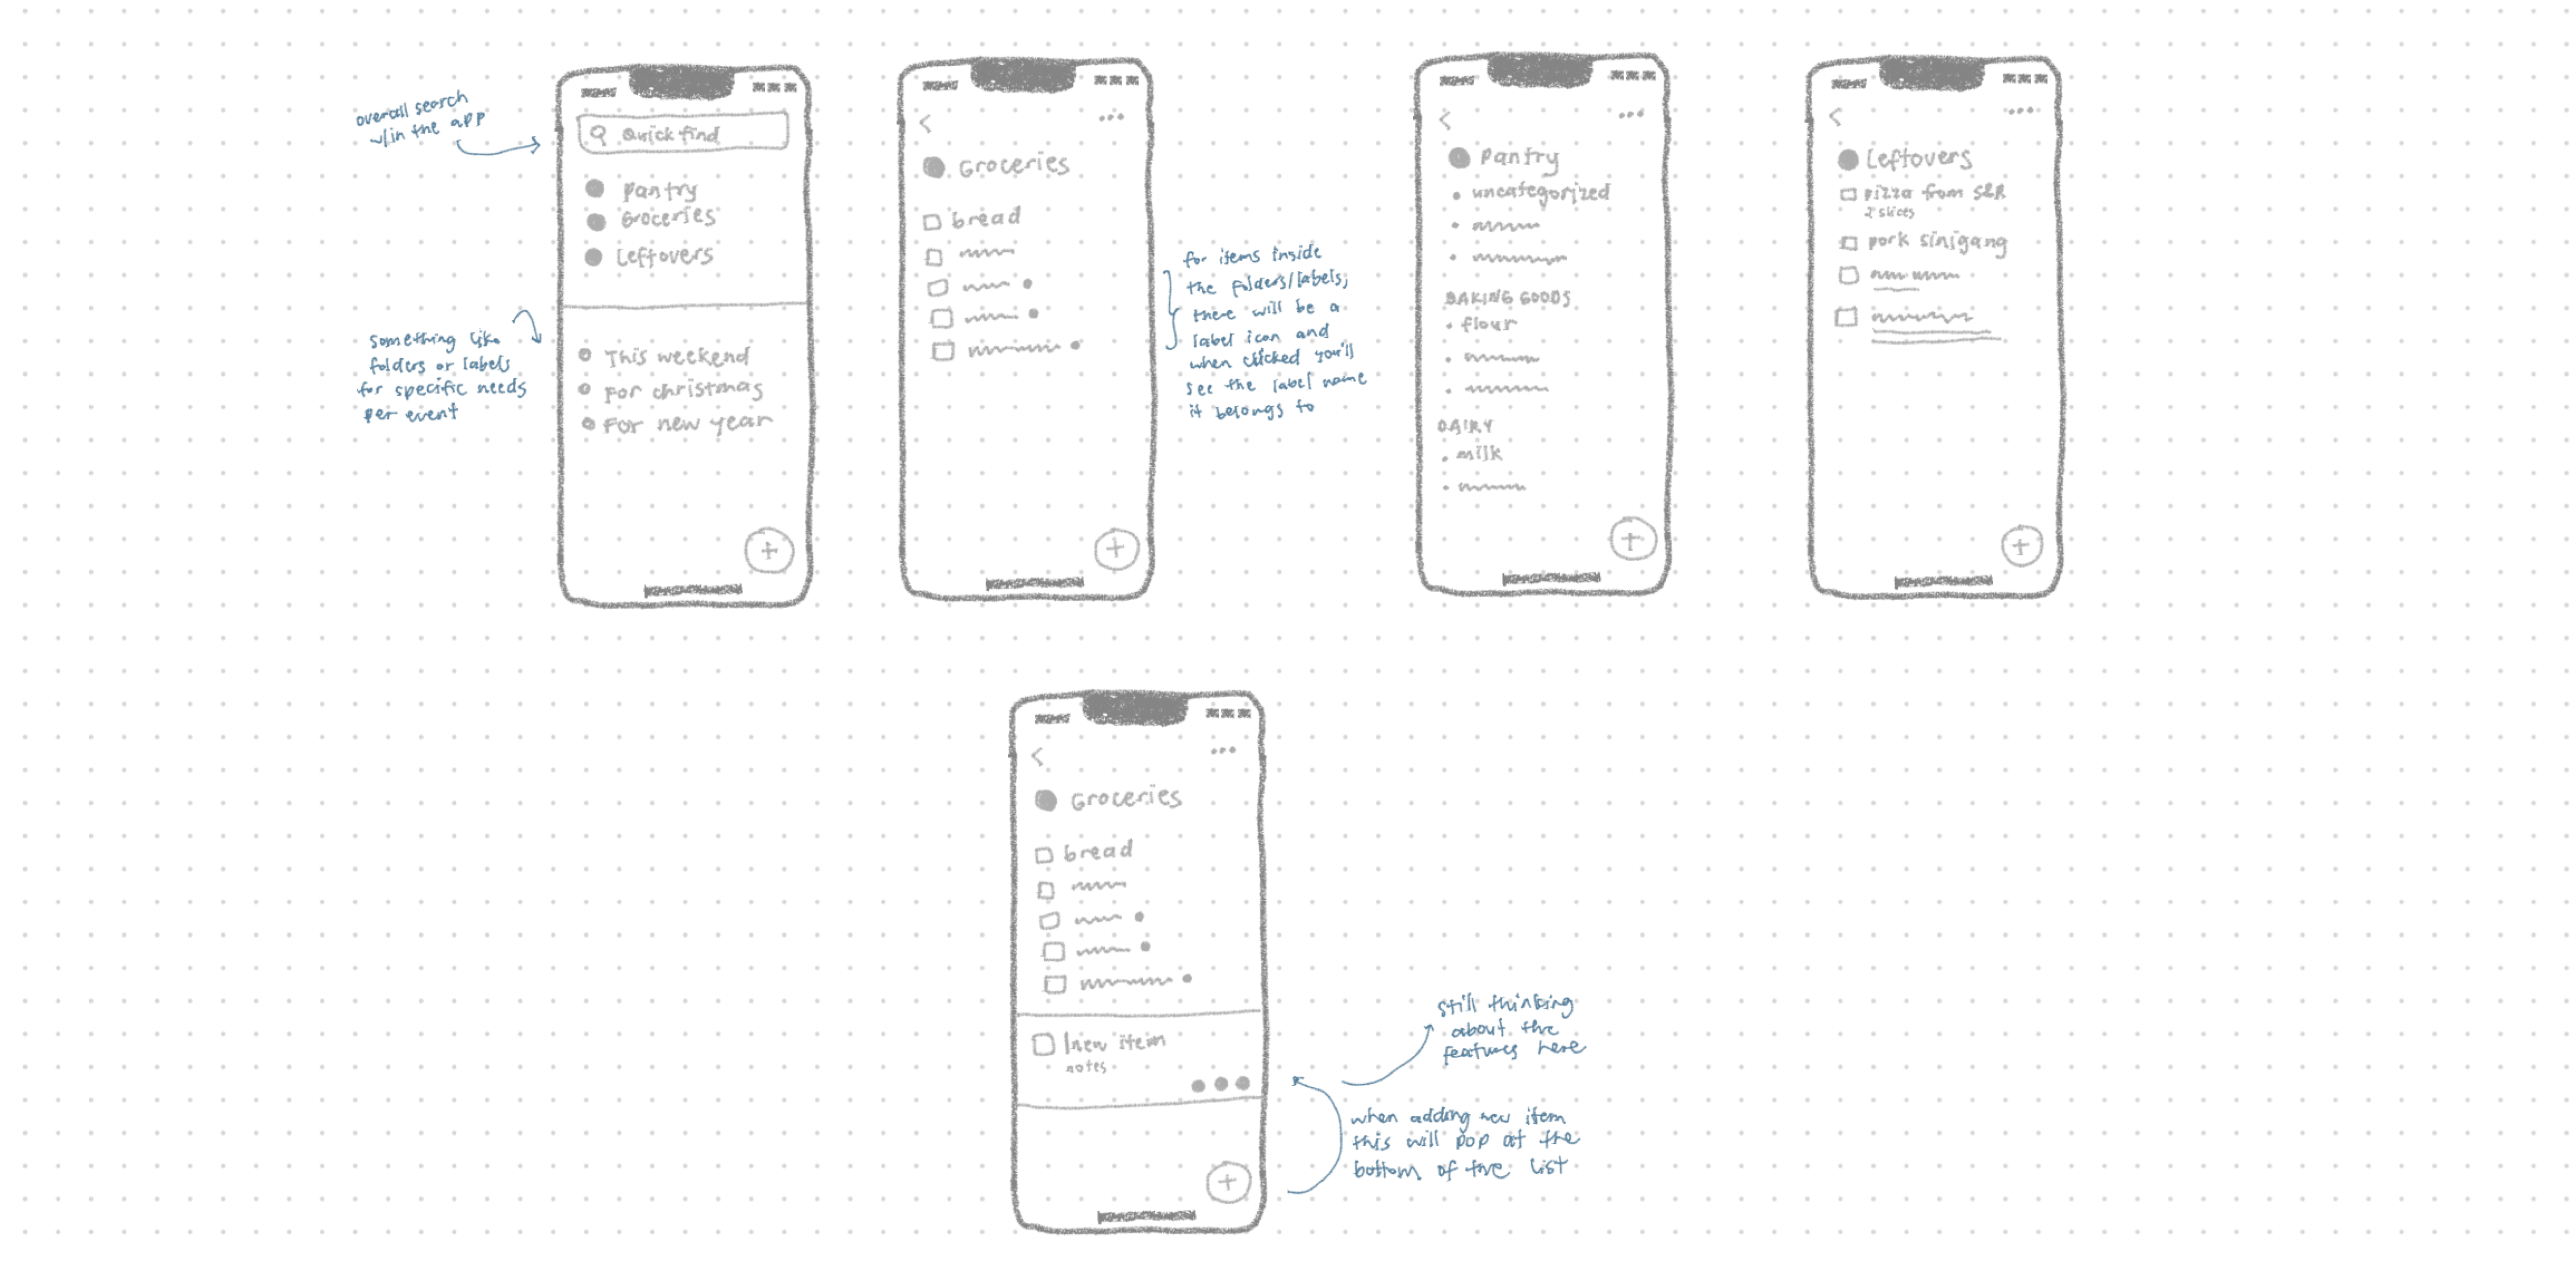 overall search
w/in the app
Quick find
Pantry
Groceries
Leftovers
something like
folders or labels
for specific needs
per event
This weekend
For christmas
For new year
Groceries
bread
for items inside
the folders/labels,
there will be a
label icon and
when clicked you'll
see the label name
it belongs to
Pantry
uncategorized
BAKING GOODS
flour
DAIRY
milk
Leftovers
pizza from S&R
2 slices
pork sinigang
Groceries
bread
new item
notes
still thinking
about the
features here
when adding new item
this will pop at the
bottom of the list